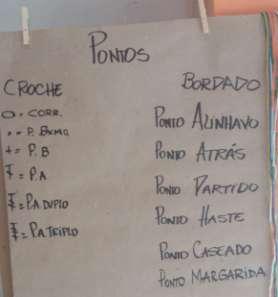 PONTOS
CROCHE
O = CORR.
• = P. BXMO
+ = P. B
Ŧ = P.A
Ŧ = P.A DUPLO
Ŧ = P.A TRIPLO
BORDADO
PONTO ALINHAVO
PONTO ATRÁS
PONTO PARTIDO
PONTO HASTE
PONTO CASEADO
PONTO MARGARIDA